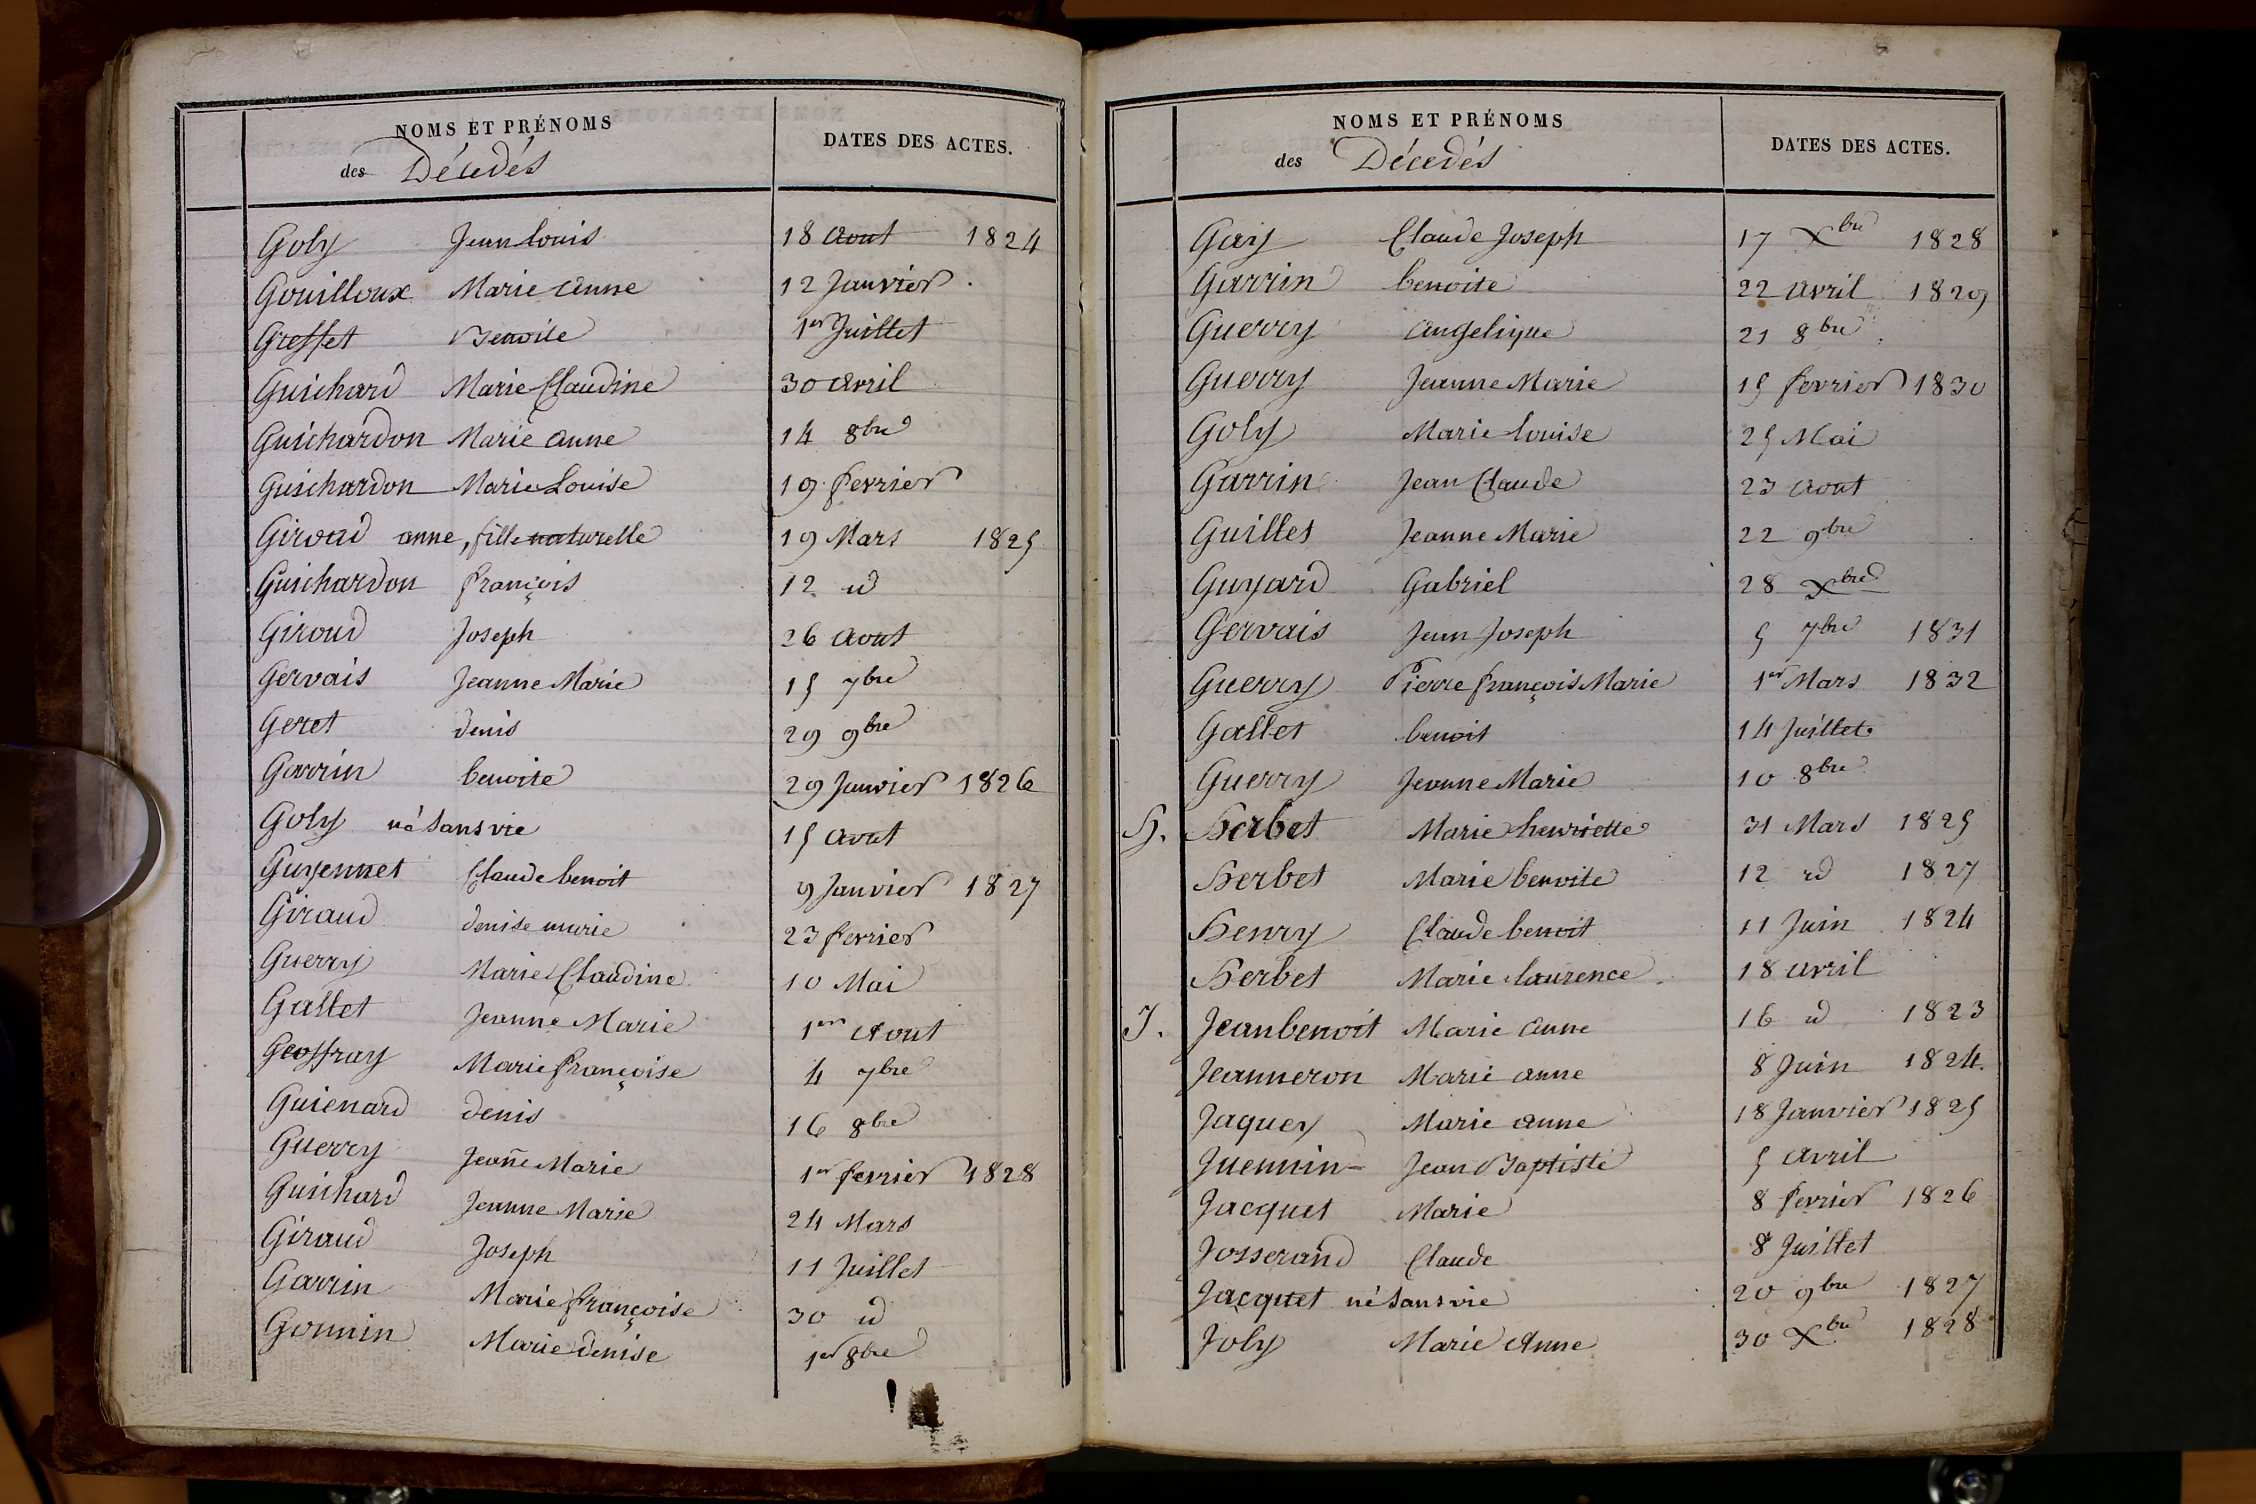 NOMS ET PRÉNOMS
des Décédés
DATES DES ACTES.
Goly Jean Louis 18 aout 1824
Gouilloux Marie anne 12 Janvier
Greffet Benoite 1er Juillet
Guichard Marie Claudine 30 avril
Guichardon Marie anne 14 8bre
Guichardon Marie Louise 19 fevrier
Giroud anne, fille naturelle 19 Mars 1825
Guichardon françois 12 id
Giroud Joseph 26 aout
Gervais Jeanne Marie 15 7bre
Geret denis 29 9bre
Garrin benoite 29 Janvier 1826
Goly né sans vie 15 aout
Guyennet Claude benoit 9 Janvier 1827
Giraud denise marie 23 fevrier
Guerry Marie Claudine 10 Mai
Gallet Jeanne Marie 1er Aout
Geoffray Marie françoise 4 7bre
Guienard denis 16 8bre
Guerry Jeañe Marie 1er fevrier 1828
Guichard Jeanne Marie 24 Mars
Giraud Joseph 11 Juillet
Garrin Marie françoise 30 id
Gonnin Marie denise 1er 8bre
NOMS ET PRÉNOMS
des Décédés
DATES DES ACTES.
Gay Claude Joseph 17 Xbre 1828
Garrin benoite 22 avril 1829
Guerry angelique 21 8bre
Guerry Jeanne Marie 15 fevrier 1830
Goly Marie Louise 25 Mai
Garrin Jean Claude 23 aout
Guillet Jeanne Marie 22 9bre
Guyard Gabriel 28 Xbre
Gervais Jean Joseph 5 7bre 1831
Guerry Pierre françois Marie 1er Mars 1832
Gallet benoit 14 Juillet
Guerry Jeanne Marie 10 8bre
H. Herbet Marie henriette 31 Mars 1825
Herbet Marie benoite 12 id 1827
Henry Claude benoit 11 Juin 1824
Herbet Marie laurence 18 avril
J. Jeanbenoit Marie anne 16 id 1823
Jeanneron Marie anne 8 Juin 1824.
Jaquey Marie anne 18 Janvier 1825
Juennin Jean Baptiste 5 avril
Jacquet Marie 8 fevrier 1826
Josserand Claude 8 Juillet
Jacquet né sans vie 20 9bre 1827
Joly Marie Anne 30 Xbre 1828